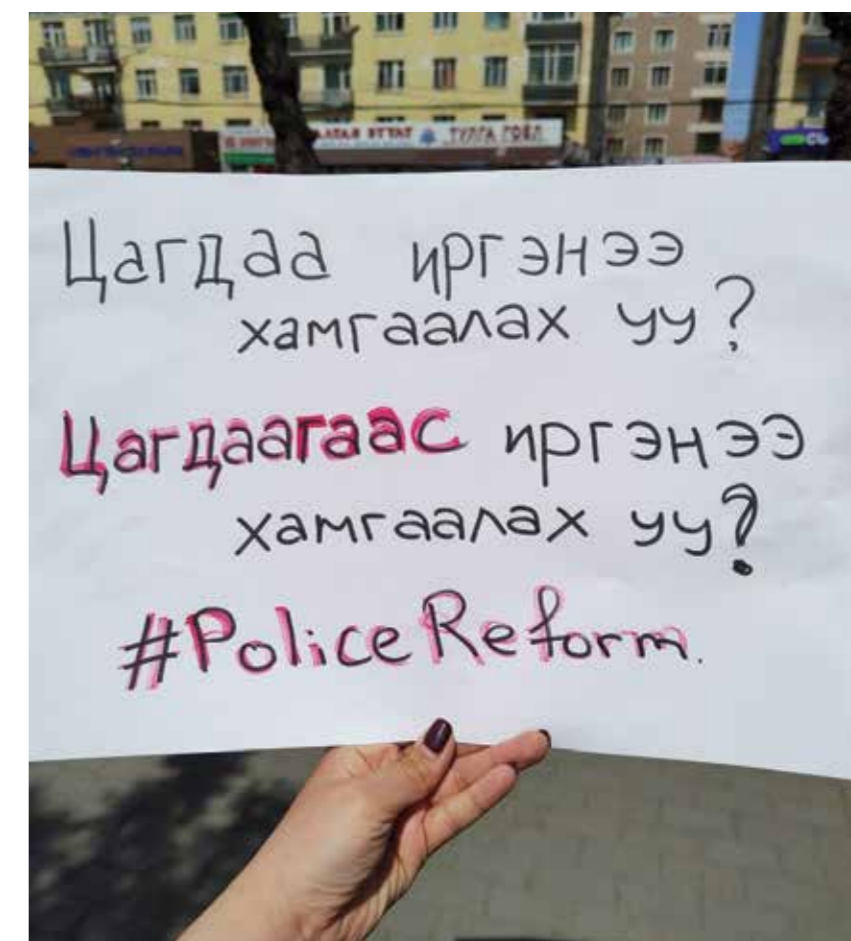 ТУЛГА ГОЁЛ
Цагдаа иргэнээ
хамгаалах уу?
Цагдаагаас иргэнээ
хамгаалах уу?
#PoliceReform.